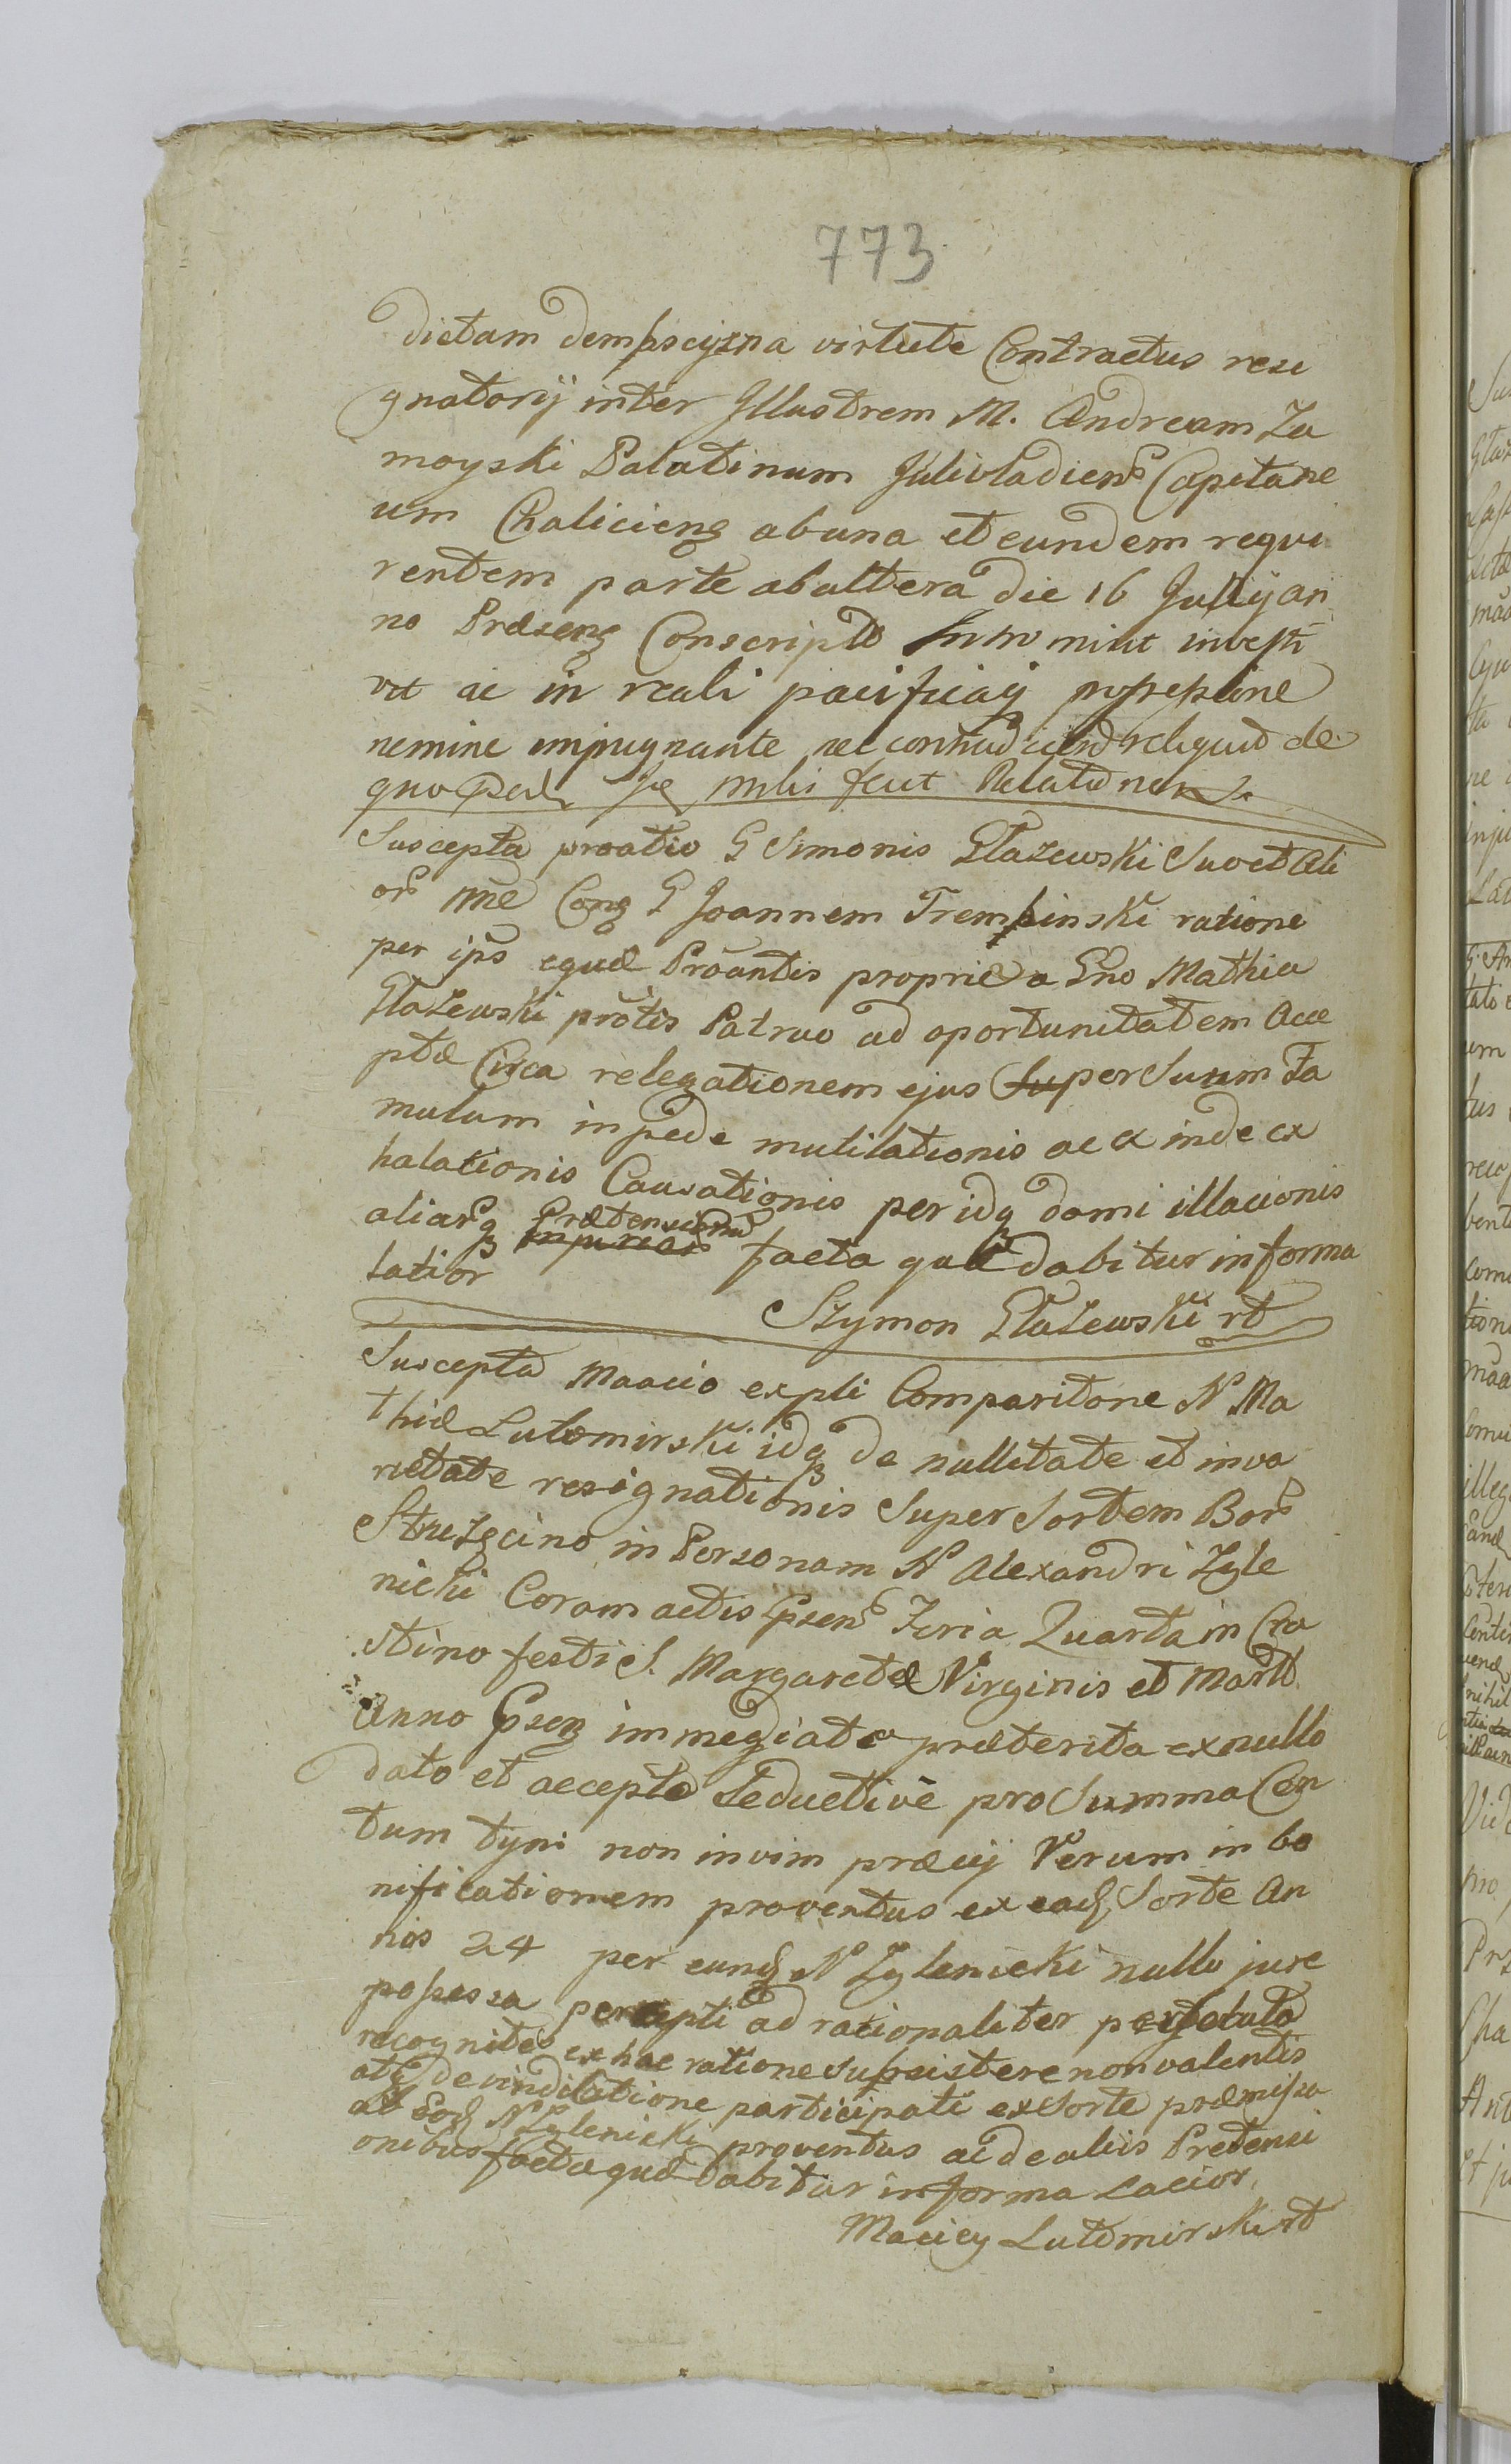 773
dictam dempscyzna virtute Contractus resi
gnatorij inter Illustrem M. Andream Za
moyski Palatinum Julivladiens Capitane
um Chaliciens ab una et eundem requi
rentem parte ab altera die 16 Julij an
no Præsens Conscripto investi
vit ac in reali possessione
nemine impugnante nec reliquid de
quo se mihi fecit Relatione
Suscepta proatio G Simonis Głazewski Suo et Ali
or nne Cong G Joannem Trempinski ratione
per ips equæ Proantis propriæ a Gno Mathia
Głazewski prõtis Patruo ad oportunitatem Acce
ptæ Circa relegationem ejus Super Suum Fa
mulum in pede mutilationis ac ex inde ex
halationis Causationis per idq domi illacionis
aliarq Prætensionu facta quæ dabitur in forma
latior
Szymon Głazewski rt
Suscepta Maacio expli Comparitone N Ma
thiæ Lutomirski idq de nullitate et inva
rietate resignationis Super Sortem Bor
Struzecino in Personam N Alexandri Zyle
nicki Coram actis Gpsens Feria Quarta in Cra
stino festi S. Margaretæ Virginis et Mart
Anno Gpsens immediate præterita ex nullo
dato et accepto Seductive pro Summa Cen
tum tyni non in vim præcij Verum in bo
nificationem proventus ex eadq Sorte An
nos 24 per eundq N Zylenicki nullo jure
possessa percepti ad racionaliter
recognite ex hac ratione supsistere non valentis
atq de vindicatione participati ex Sorte præmissa
ab Eodq N Zylenicki proventus ac de aliis Pretensi
onibus facta quæ dabitur in forma Lacior.
Maciey Lutomirski rt